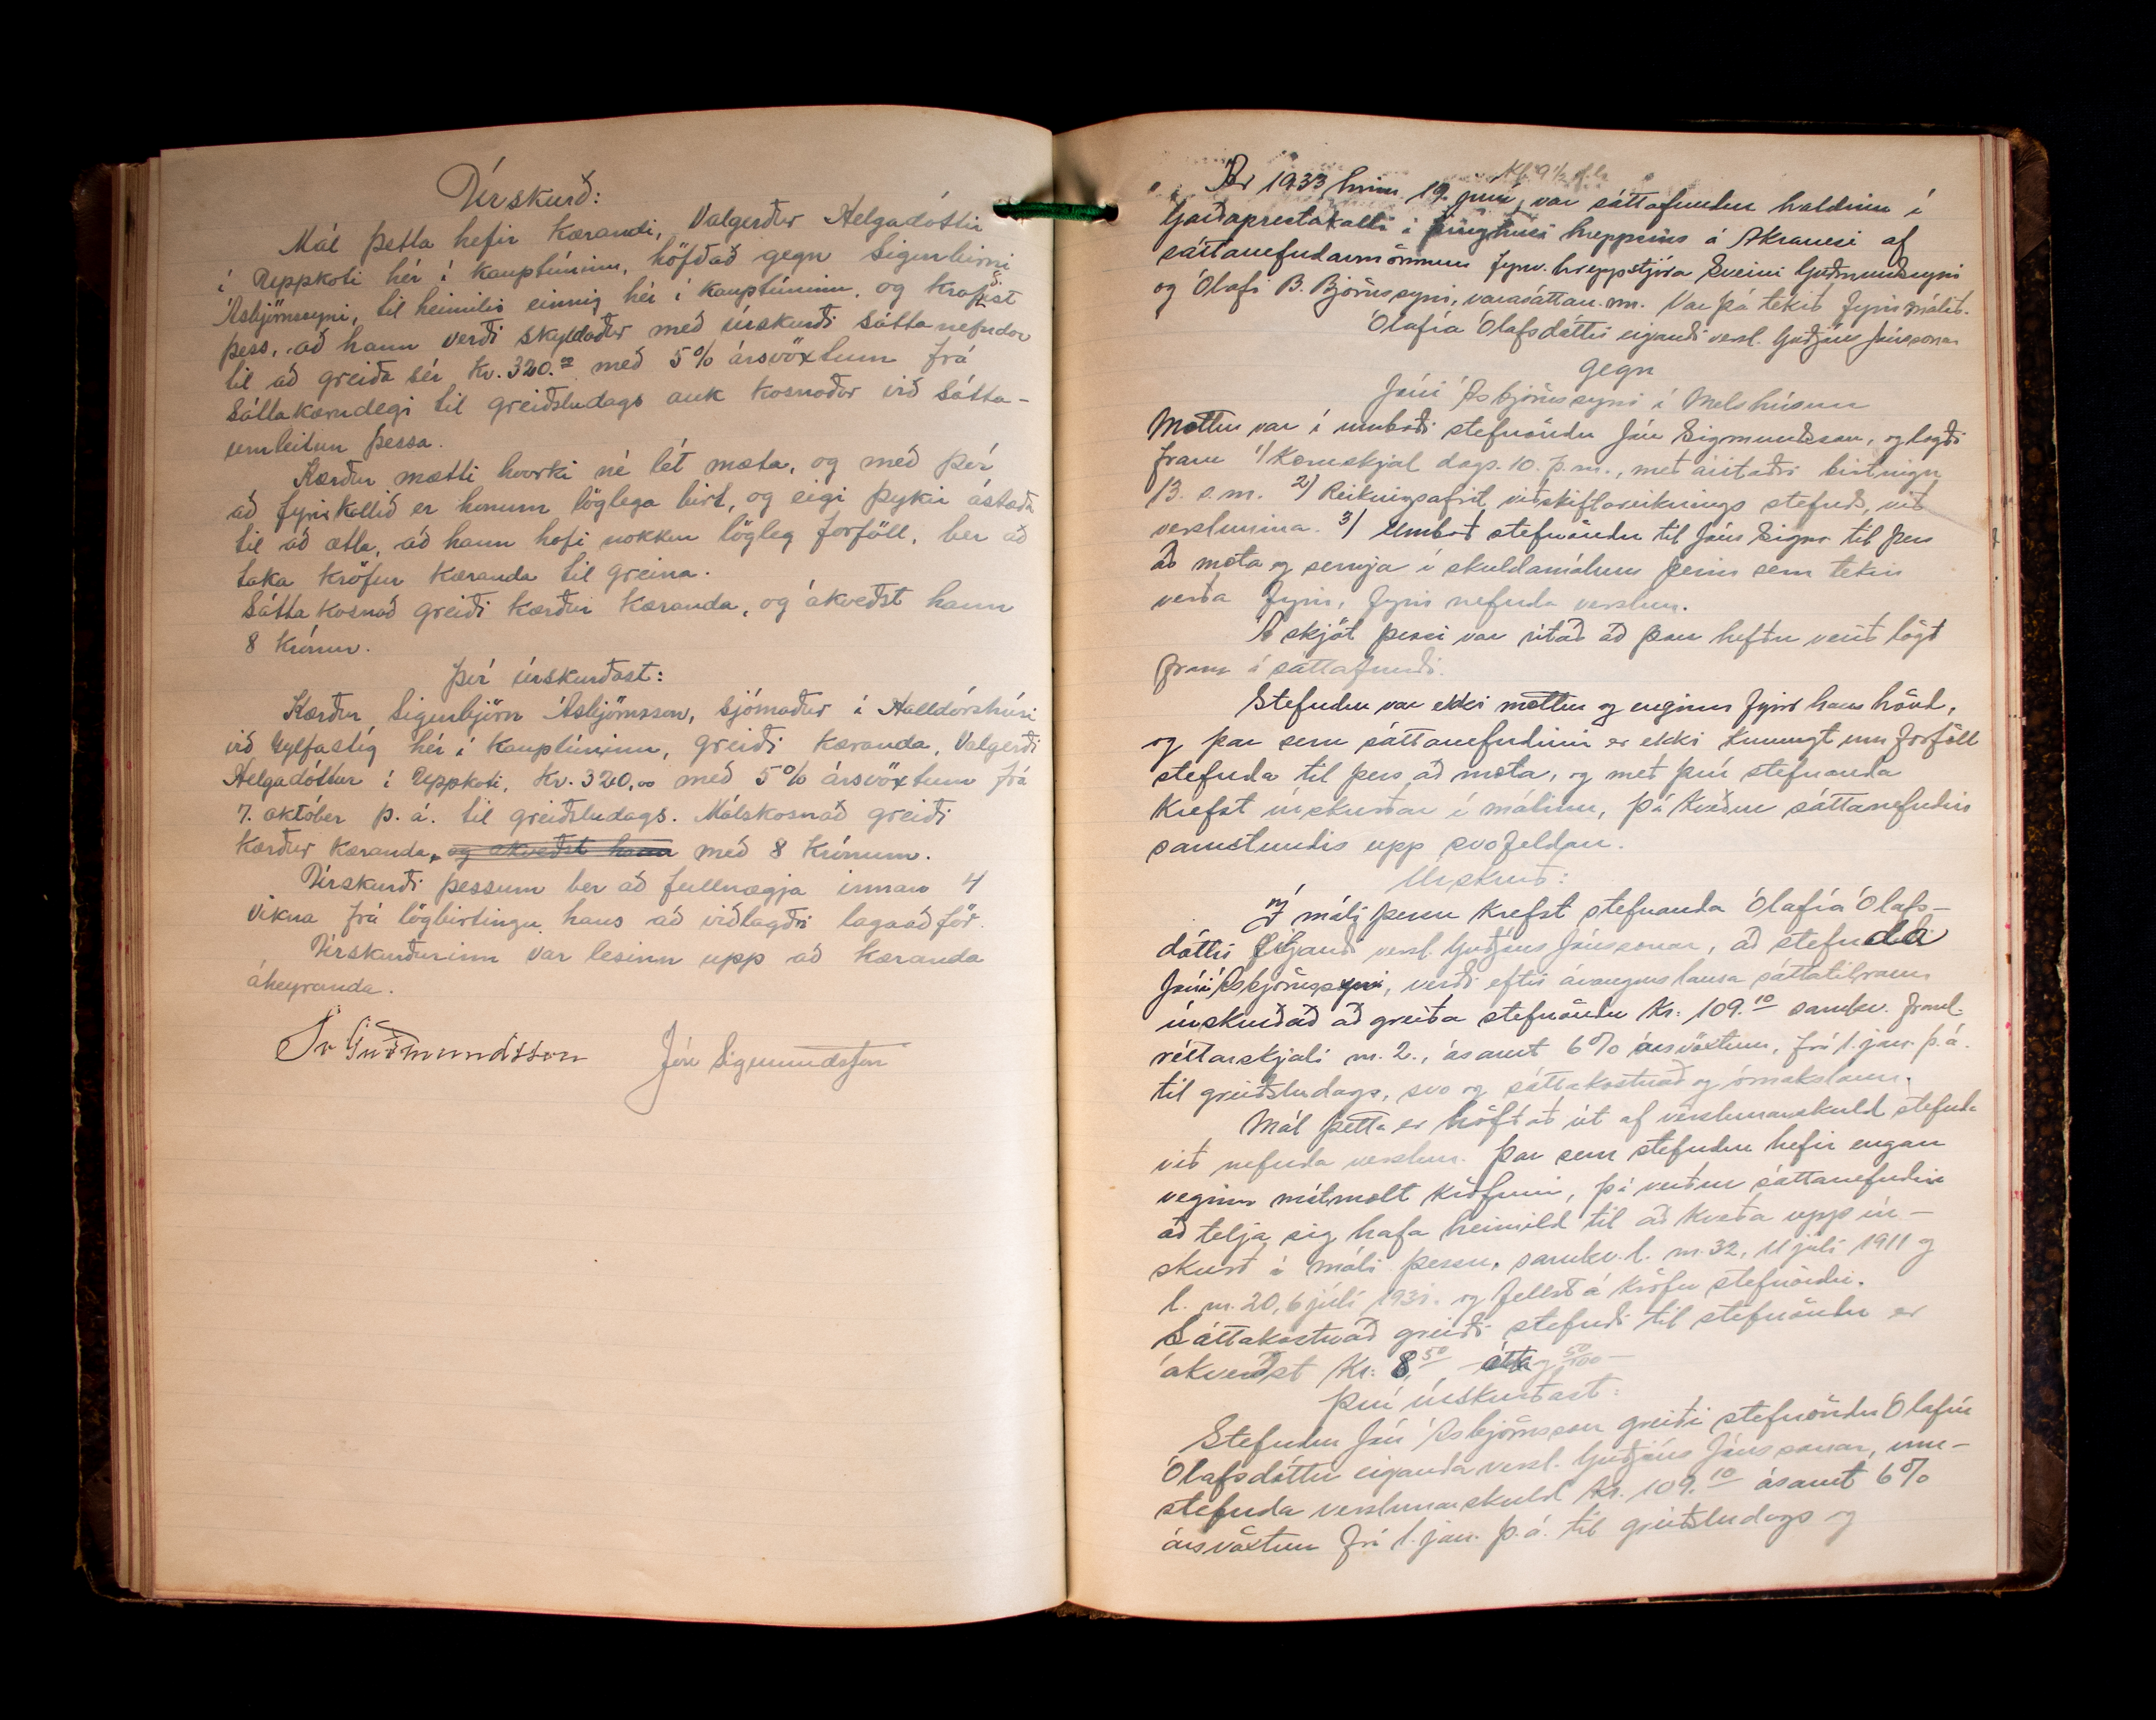 Úrskurð:
Mál þetta hefir kærandi, Valgerður Helgadóttir
í Uppkoti hér í kauptúninu, höfðað gegn Sigurbirni
Ásbjörnssyni, til heimilis einnig hér í kauptúninu, og krafist
þess, að hann verði skyldaður með úrskurði sáttanefndar
til að greiða sér kr. 320.00 með 5% ársvöxtum frá
sáttakærudegi til greiðsludags auk kosnaðar við sátta-
umleitun þessa.
Kærður mætti hvorki né lét mæta, og með því
að fyrirkallið er honum löglega birt, og eigi þykir ástæða
til að ætla, að hann hafi nokkur lögleg forföll, ber að
taka kröfur kæranda til greina.
Sáttakosnað greiði kærður kæranda, og ákveðst hann
8 krónur.
Því úrskurðast:
Kærður, Sigurbjörn Ásbjörnsson, sjómaður í Halldórshúsi
við Vylfastíg hér í kauptúninu, greiði kæranda, Valgerði
Helgadóttur í Uppkoti, kr. 320,00 með 5% ársvöxtum frá
7. október þ.á. til greiðsludags. Málskosnað greiði
kærður kæranda, og ákveðst hann með 8 krónum.
Úrskurði þessum ber að fullnægja innan 4
vikna frá lögbirtingu hans að viðlagðri lagaaðför.
Úrskurðurinn var lesinn upp að kæranda
áheyranda.
Sv Guðmundsson Jón Sigmundsson
Kl. 9 1/2 f.h.
Ár 1933 hinn 19. júní, var sáttafundur haldinn í
Garðaprestakalli í þinghúsi hreppsins á Akranesi af
sáttanefndarmönnum fyrv. hreppstjóra Sveini Guðmundssyni
og Ólafi B. Björnssyni, varasáttan.m. Var þá tekið fyrir málið.
Ólafía Ólafsdóttir eigandi versl. Guðjóns Jónssonar
gegn
Jóni Ásbjörnssyni í Melshúsum
Mættur var í umboði stefnöndu Jón Sigmundsson, og lagði
fram 1/ Kæruskjal dags. 10. þ.m., með áritaðri birtingu
13. s.m. 2) Reikningsafrit viðskiftareiknings stefnds, við
verslunina. 3/ Umboð stefnöndu til Jóns Sigm. til þess
að mæta og semja í skuldamálum þeim sem tekin
verða fyrir, fyrir nefnda verslun.
Á skjöl þessi var ritað að þau hefðu verið lögð
fram í sáttafundi.
Stefndur var ekki mættur og enginn fyrir hans hönd,
og þar sem sáttanefndinni er ekki kunnugt um forföll
stefnda til þess að mæta, og með því stefnanda
krefst úrskurðar í málinu, þá kveður sáttanefndin
samstundis upp svofeldan.
Úrskurð:
Í máli þessu krefst stefnanda Ólafía Ólafs-
dóttir eigandi versl. Guðjóns Jónssonar, að stefnda
Jóni Ásbjörnssyni, verði eftir árangurslausa sáttatilraun
úrskurðað að greiða stefnöndu Kr: 109.10 samkv. fram-
réttarskjali nr. 2., ásamt 6% ársvöxtum, frá 1. jan. þ.á.
til greiðsludags, svo og sáttakostnað og ómakslaun.
Mál þetta er höfðað út af verslunarskuld stefnda
við nefnda verslun. Þar sem stefndur hefir engan
veginn mótmælt kröfunni, þá verður sáttanefndin
að telja sig hafa heimild til að kveða upp úr-
skurð í máli þessu, samkv. l. nr. 32, 11 júlí 1911 og
l. nr. 20, 6 júlí 1931. og fellst á kröfu stefnöndu.
Sáttakostnað greiði stefndi til stefnöndu er
ákveðst Kr: 8,50 - átta og 50/100 -
Því úrskurðast:
Stefndur Jón Ásbjörnsson greiði stefnöndu Ólafíu
Ólafsdóttur eiganda versl. Guðjóns Jónssonar, um-
stefnda verslunarskuld Kr. 109.10 ásamt 6%
ársvöxtum frá 1. jan. þ.á. til greiðsludags og